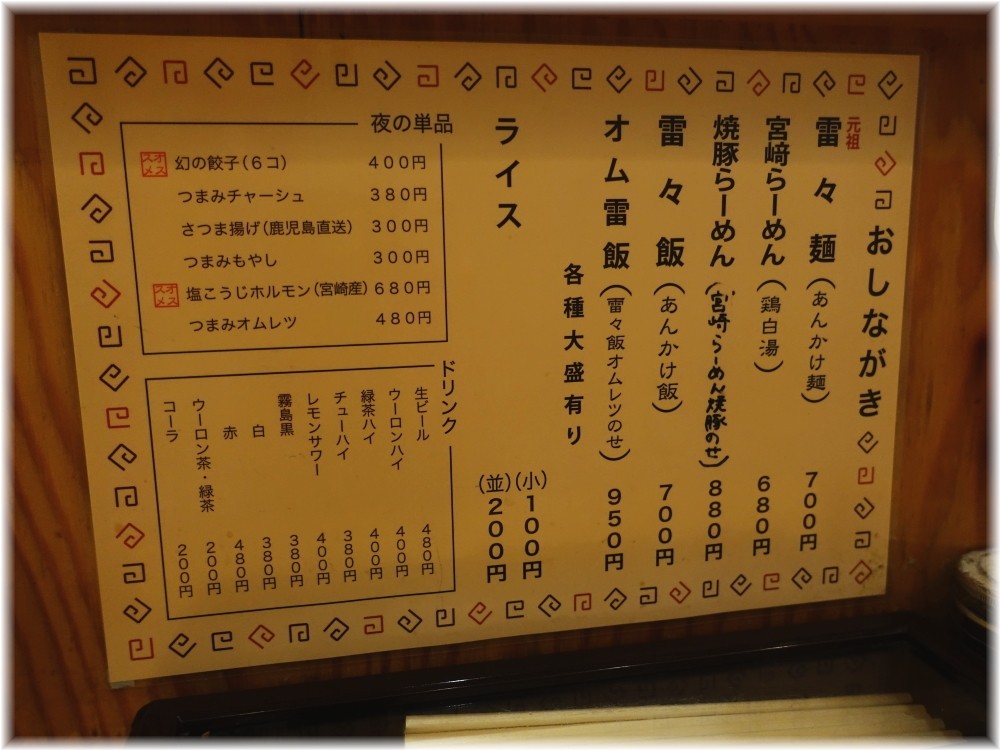 おしながき
元祖
雷々麺(あんかけ麺) 700円
宮﨑らーめん(鶏白湯) 680円
焼豚らーめん(宮崎らーめん焼豚のせ) 880円
雷々飯(あんかけ飯) 700円
オム雷飯(雷々飯オムレツのせ) 950円
各種大盛有り
ライス (小)100円
(並)200円
夜の単品
オススメ 幻の餃子(6コ) 400円
つまみチャーシュ 380円
さつま揚げ(鹿児島直送) 300円
つまみもやし 300円
オススメ 塩こうじホルモン(宮崎産) 680円
つまみオムレツ 480円
ドリンク
生ビール 480円
ウーロンハイ 400円
緑茶ハイ 400円
チューハイ 380円
レモンサワー 400円
霧島黒 380円
白 380円
赤 480円
ウーロン茶・緑茶 200円
コーラ 200円